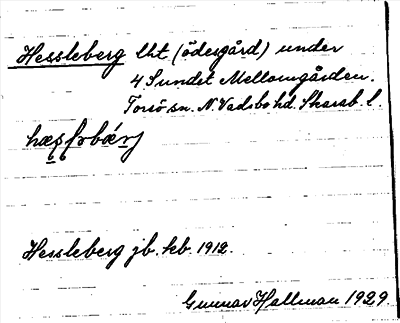 Hessleberg lht. (ödegård) under
4 Sundet Mellomgården.
Torsö sn. N. Vadsbo hd. Skarab. l.
Hessleberg jb. kb. 1912.
Gunnar Hallman 1929.